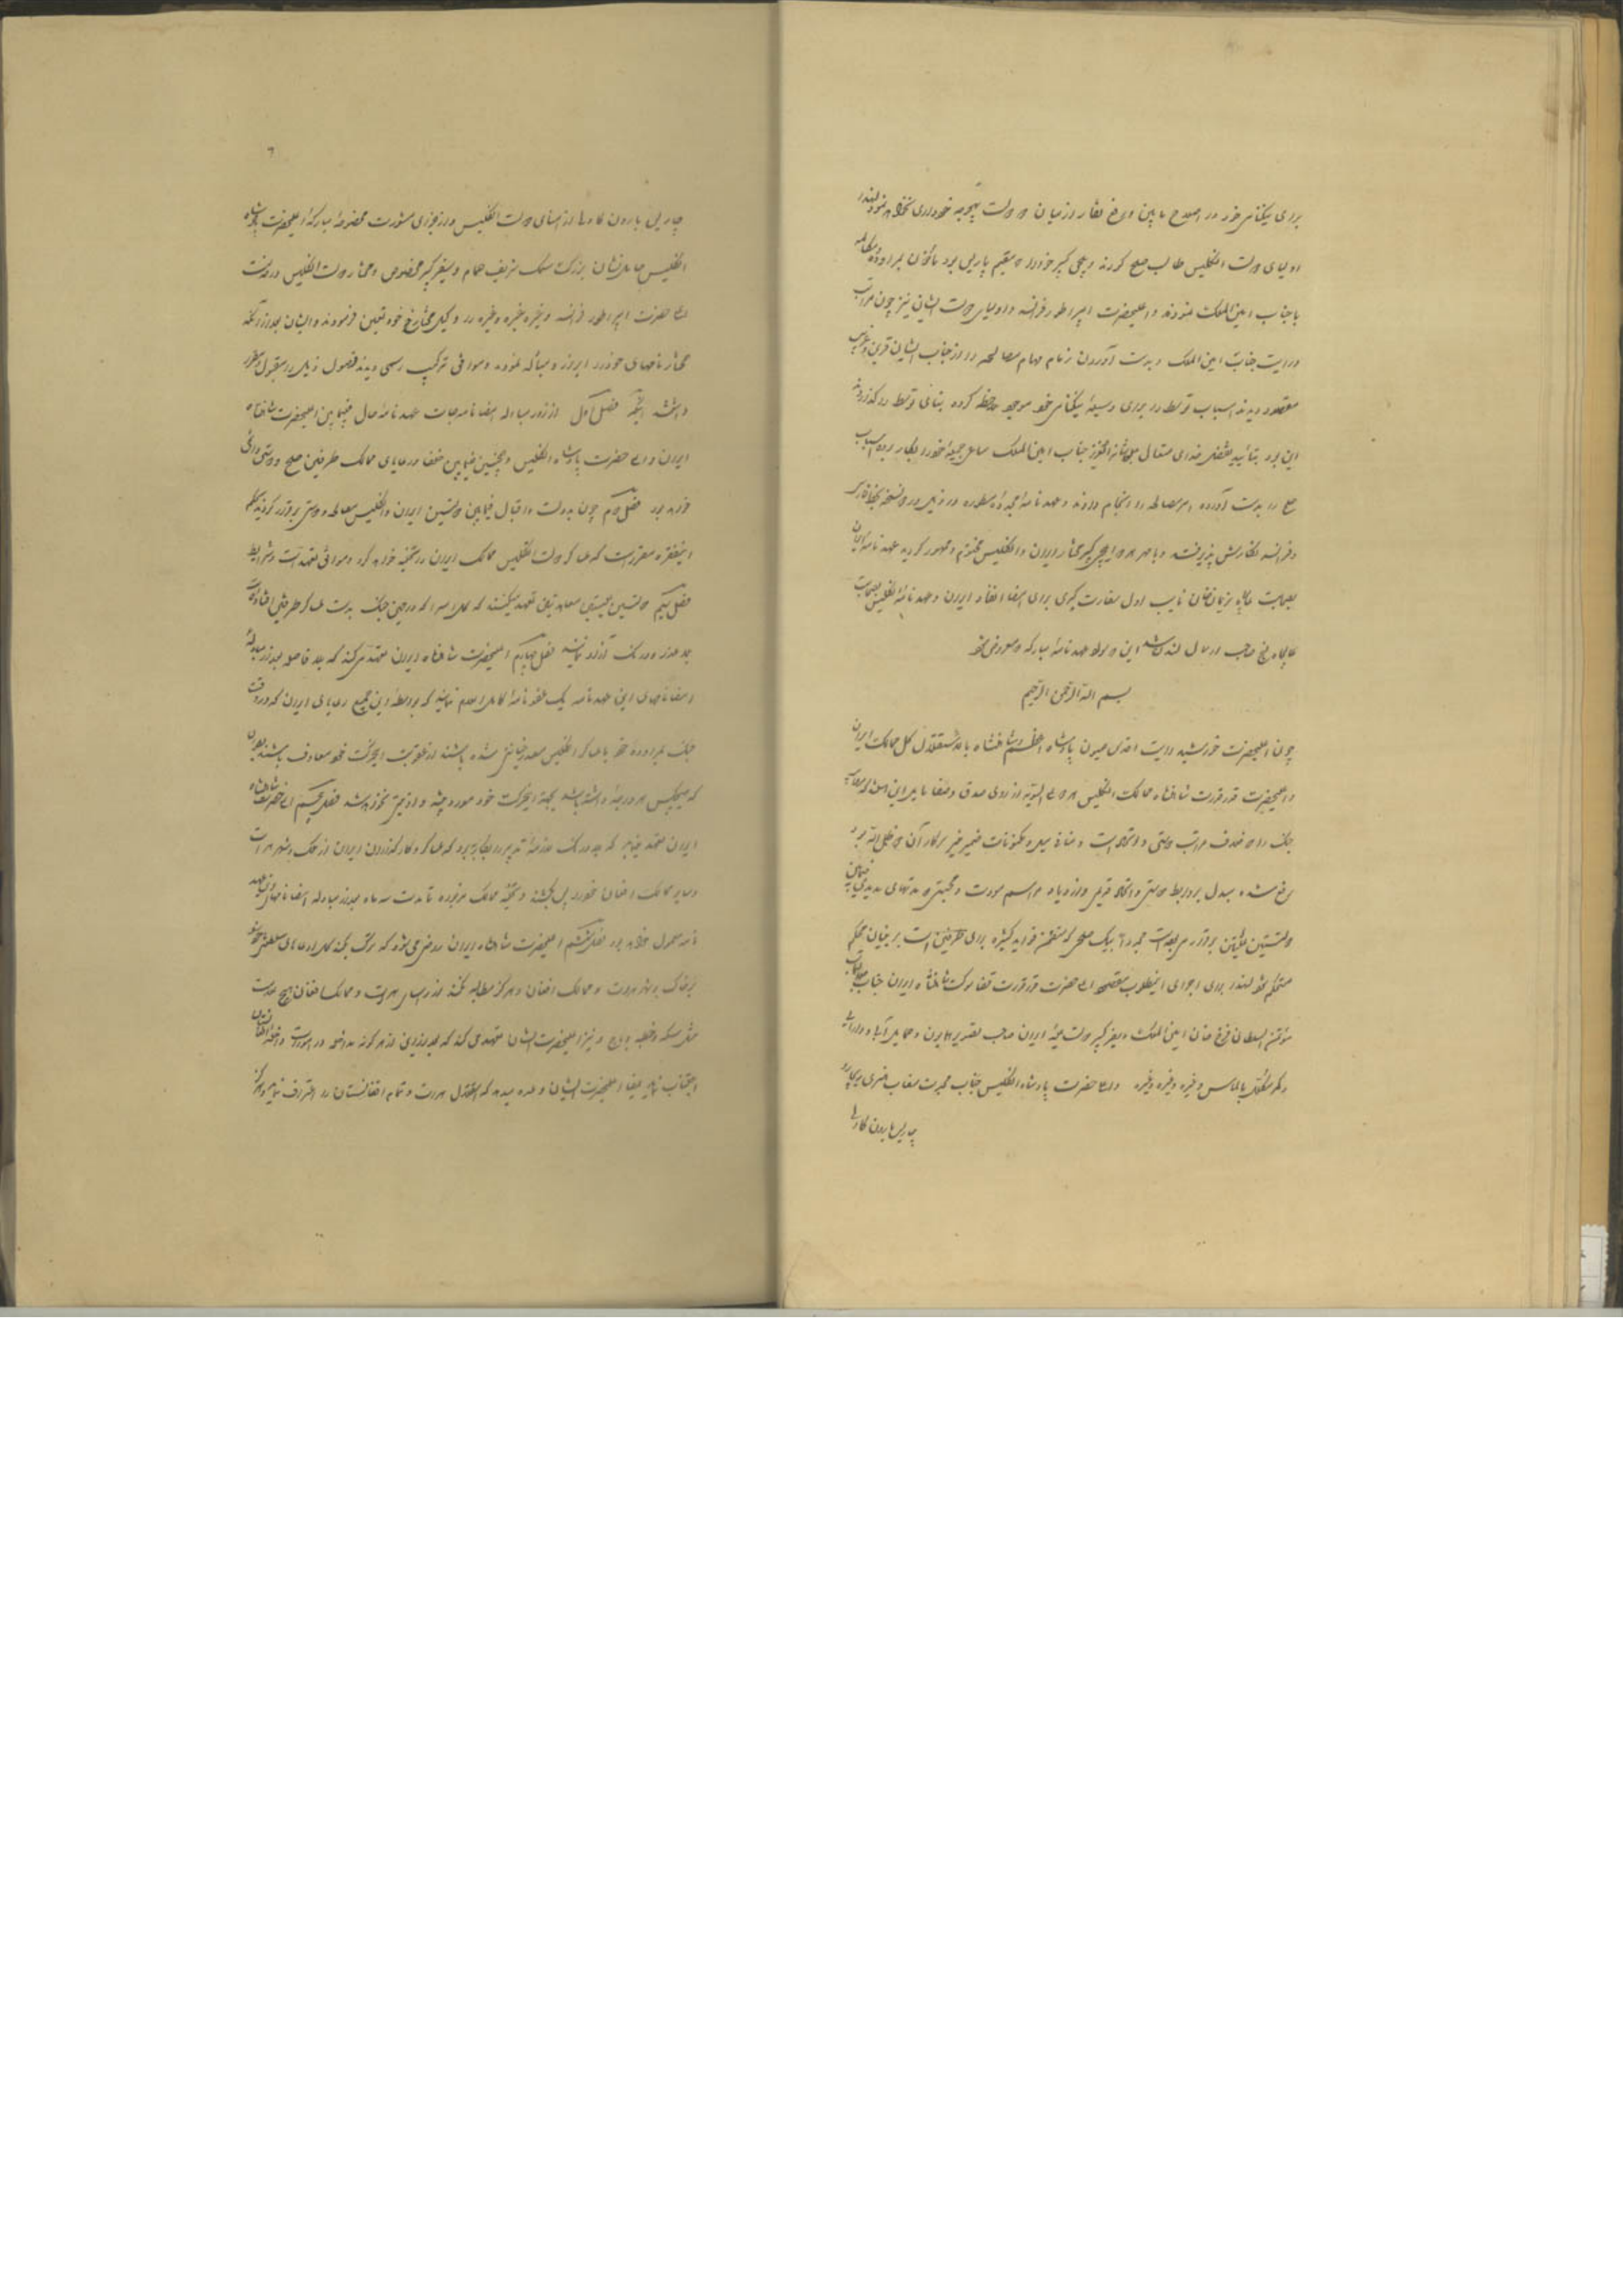 برای نیکنامی خود در اصلاح مابین و رفع نقار از میان دو دولت بهیچوجه خودداری نخواهد نمود لهذا
اولیای دولت انگلیس طالب صلح گردیده ایلچی کبیر خود را که مقیم پاریس بود مأذون بمراوده و مکالمه
با جناب امین الملک نمودند و اعلیحضرت امپراطور فرانسه و اولیای دولت ایشان نیز چون مراتب
درایت جناب امین الملک و بدست آوردن زمام مهام مصالحه را از جناب ایشان قرین
دیدند اسباب توسط را برای وسیله نیکنامی خود موجود ملاحظه کرده بنای توسط
این بود بتأیید خدای متعال جناب امین الملک مساعی جمیله خود را بکار برده اسباب
صلح را بدست آورده امر مصالحه را انجام دادند و عهدنامه مسطوره در ذیل در دو نسخه بخط فارسی
و فرانسه نگارش پذیرفت و بامهر هر دو ایلچی کبیر مختار ایران و انگلیس مختوم و ممهور گردید عهدنامه ایران
بصحابت عالیجاه نریمان خان نایب اول سفارت کبری برای امضا انفاذ ایران و عهدنامه انگلیس بصحابت
عالیجاه صاحب ارسال لندن شد این سواد عهدنامه مبارکه
بسم الله الرحمن الرحیم
چون اعلیحضرت خورشید رایت اقدس همیون پادشاه اعظم شاهنشاه بالاستقلال کل ممالک ایران
و اعلیحضرت قدر قدرت شاهنشاه ممالک انگلیس هر دو علی السویه از روی صدق و صفا مایل این هستند که
جنگ را که خلاف مراتب دوستی و اتحاد است و منافی میل و مکنونات ضمیر
رفع شده مبدل بروابط دوستی و اتحاد قدیمی و ازدیاد مراسم مودت و محبتی که مدتهای مدید فیمابین
دولتین علیتین برقرار بوده است مجدداً بیک صلحی که متضمن فواید کثیره برای طرفین است بر بنیان محکم
مستحکم شود لهذا برای اجرای این مطلوب و مقصود اعلیحضرت قدر قدرت شاهنشاه ایران جناب
مؤتمن السلطان فرخ خان امین الملک سفیر کبیر دولت علیه ایران صاحب تصویر همایون و حمایل آبی و دارای
کمر مکلل بالماس و غیره و غیره و غیره و اعلیحضرت پادشاه انگلیس جناب مجدت نصاب هنری ریچارد
چارلس بارون کاولی
چارلس بارون کاولی از امنای دولت انگلیس و از اجزای مشورت مخصوصه مبارکه اعلیحضرت پادشاه
انگلیس حامل نشان بزرگ شریف حمام و سفیر کبیر مخصوص و مختار دولت انگلیس در دولت
اعلیحضرت امپراطور فرانسه و غیره و غیره و غیره را وکیل مختار خود تعیین فرمودند و ایشان بعد از آنکه
مختارنامهای خود را ابراز و مبادله نموده و موافق ترکیب رسمی دیدند فصول ذیل را مقبول و مقرر
داشتند فصل اول از روز مبادله امضانامه جات عهدنامه حال فیمابین اعلیحضرت شاهنشاه
ایران و اعلیحضرت پادشاه انگلیس و همچنین فیمابین خلفا و رعایای ممالک طرفین صلح و دوستی دائمی
خواهد بود فصل دوم چون بدولت و اقبال فیمابین دولتین ایران و انگلیس مصالحه و دوستی برقرار گردید بحکم
این فقره مقرر است که عساکر دولت انگلیس ممالک ایران را تخلیه خواهند کرد موافق تعهدات و شرایط
فصل سیم دولتین علیتین معاهدتین تعهد میکنند که کل اسرا که در حین جنگ بدست عساکر طرفین افتاده باشد
بلا درنگ آزاد نمایند فصل چهارم اعلیحضرت شاهنشاه ایران تعهد میکند که بلا فاصله بعد از مبادله
امضانامهای این عهدنامه یک عفونامه کامله اعلام نمایند که بواسطه آن جمیع رعایای ایران که در وقت
جنگ بمراوده خود با عساکر انگلیس مصدر خیانتی شده باشند از عقوبت این حرکت خود معاف باشند بطوری
که هیچکس هر درجه داشته باشد بجهة این حرکت خود مورد تنبیه و اذیتی نخواهد شد فصل پنجم اعلیحضرت شاهنشاه
ایران تعهد مینماید که بلا درنگ تدبیر لازمه را بکار برد که عساکر و کارگذاران ایران از خاک و شهر هرات
و سایر ممالک افغان خود را پس بکشند و تخلیه ممالک مزبوره تا مدت سه ماه بعد از مبادله امضانامهای این عهد
نامه معمول خواهد بود فصل ششم اعلیحضرت شاهنشاه ایران راضی میشود که ترک بکند کل ادعای سلطنتی خود را
بر خاک و شهر هرات و ممالک افغان و هرگز مطالبه نکند از رؤسای هرات و ممالک افغان هیچ علامت
مثل سکه و خطبه و باج و نیز اعلیحضرت ایشان تعهد میکند که بعد از این از هر گونه مداخله در امورات داخله افغانستان
اجتناب نماید و نیز اعلیحضرت ایشان وعده میدهد که استقلال هرات و تمام افغانستان را اعتراف نماید و هرگز